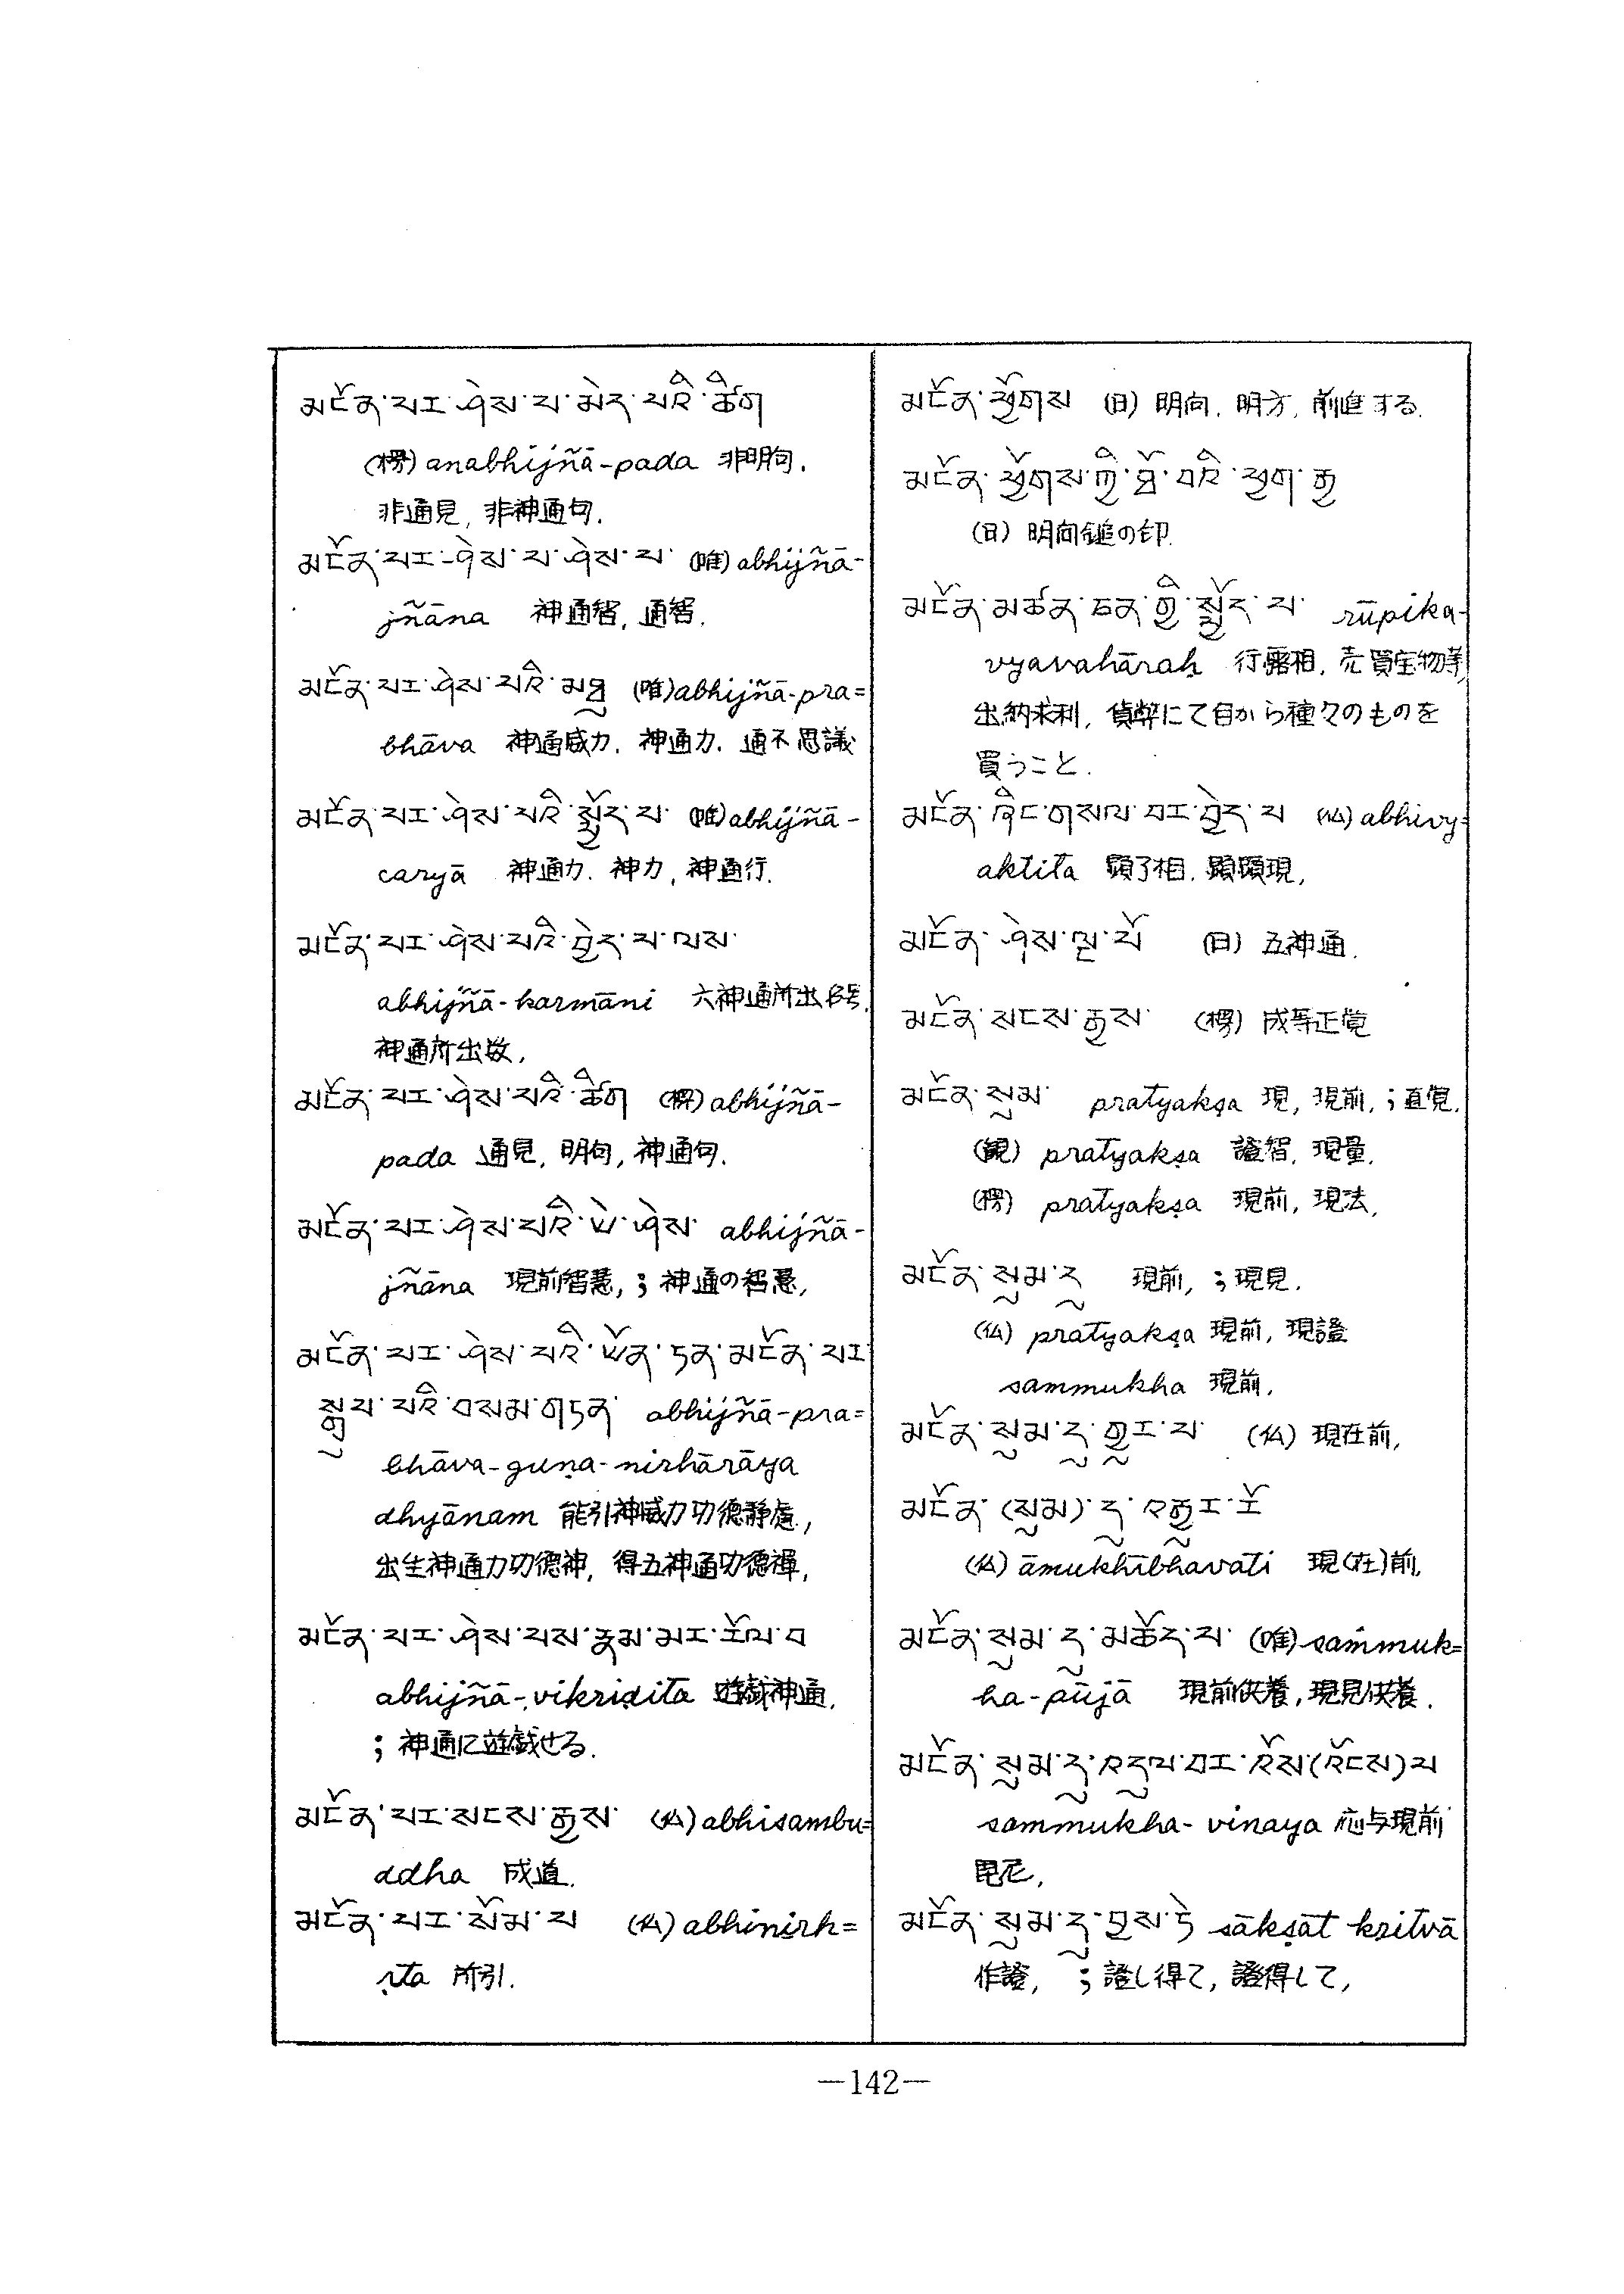 མངོན་པར་ཤེས་པ་མེད་པའི་ཚིག
(楞) anabhijñā-pada 非明句.
非通見, 非神通句.
མངོན་པར་ཤེས་པ་ཤེས་པ་ (唯) abhijñā-
jñāna 神通智, 通智.
མངོན་པར་ཤེས་པའི་མཐུ (唯) abhijñā-pra=
bhāva 神通威力. 神通力. 通不思議
མངོན་པར་ཤེས་པའི་སྤྱོད་པ་ (唯) abhijñā-
caryā 神通力. 神力, 神通行.
མངོན་པར་ཤེས་པའི་བྱེད་པ་ལས་
abhijñā-karmāni 六神通所出名号,
神通所出数,
མངོན་པར་ཤེས་པའི་ཚིག (楞) abhijñā-
pada 通見, 明句, 神通句.
མངོན་པར་ཤེས་པའི་ཡེ་ཤེས་ abhijñā-
jñāna 現前智慧, ; 神通の智慧,
མངོན་པར་ཤེས་པའི་ཡོན་ཏན་མངོན་པར་
སྒྲུབ་པའི་བསམ་གཏན་ abhijñā-pra=
bhāva-guṇa-nirhārāya
dhyānam 能引神威力功德静慮,
出生神通力功德神, 得五神通功德禪,
མངོན་པར་ཤེས་པས་རྣམ་མར་རོལ་བ
abhijñā-vikriḍita 遊戯神通,
; 神通に遊戯せる.
མངོན་པར་སངས་རྒྱས་ (仏) abhisambu=
ddha 成道.
མངོན་པར་སོམ་པ (仏) abhinirh=
ṛta 所引.
མངོན་ཕྱོགས (日) 明向. 明方. 前進する.
མངོན་ཕྱོགས་ཀྱི་ཐོ་བའི་ཕྱག་རྒྱ
(日) 明向鎚の印.
མངོན་མཚན་ཅན་གྱི་སྤྱོད་པ་ rūpika-
vyavahāraḥ 行露相, 売買宝物等,
出納求利, 貨幣にて自から種々のものを
買うこと.
མངོན་ཞིང་གསལ་བར་བྱེད་པ (仏) abhivy=
aktita 顕了相. 顕顕現,
མངོན་ཤེས་ལྔ་པོ (日) 五神通.
མངོན་སངས་རྒྱས་ (楞) 成等正覚
མངོན་སུམ་ pratyakṣa 現, 現前, ; 直覚.
(観) pratyakṣa 證智, 現量.
(楞) pratyakṣa 現前, 現法,
མངོན་སུམ་དུ 現前, ; 現見.
(仏) pratyakṣa 現前, 現證
sammukha 現前,
མངོན་སུམ་དུ་གྱུར་པ་ (仏) 現在前,
མངོན་(སུམ)་དུ་འགྱུར་རོ
(仏) āmukhībhavati 現(在)前,
མངོན་སུམ་དུ་མཆོད་པ་ (唯) sammuk=
ha-pūjā 現前供養, 現見供養.
མངོན་སུམ་དུ་འདུལ་བར་འོས་(འོངས)པ
sammukha-vinaya 応与現前
毘尼,
མངོན་སུམ་དུ་བྱས་ཏེ sākṣāt kritvā
作證, ; 證し得て, 證得して,
—142—